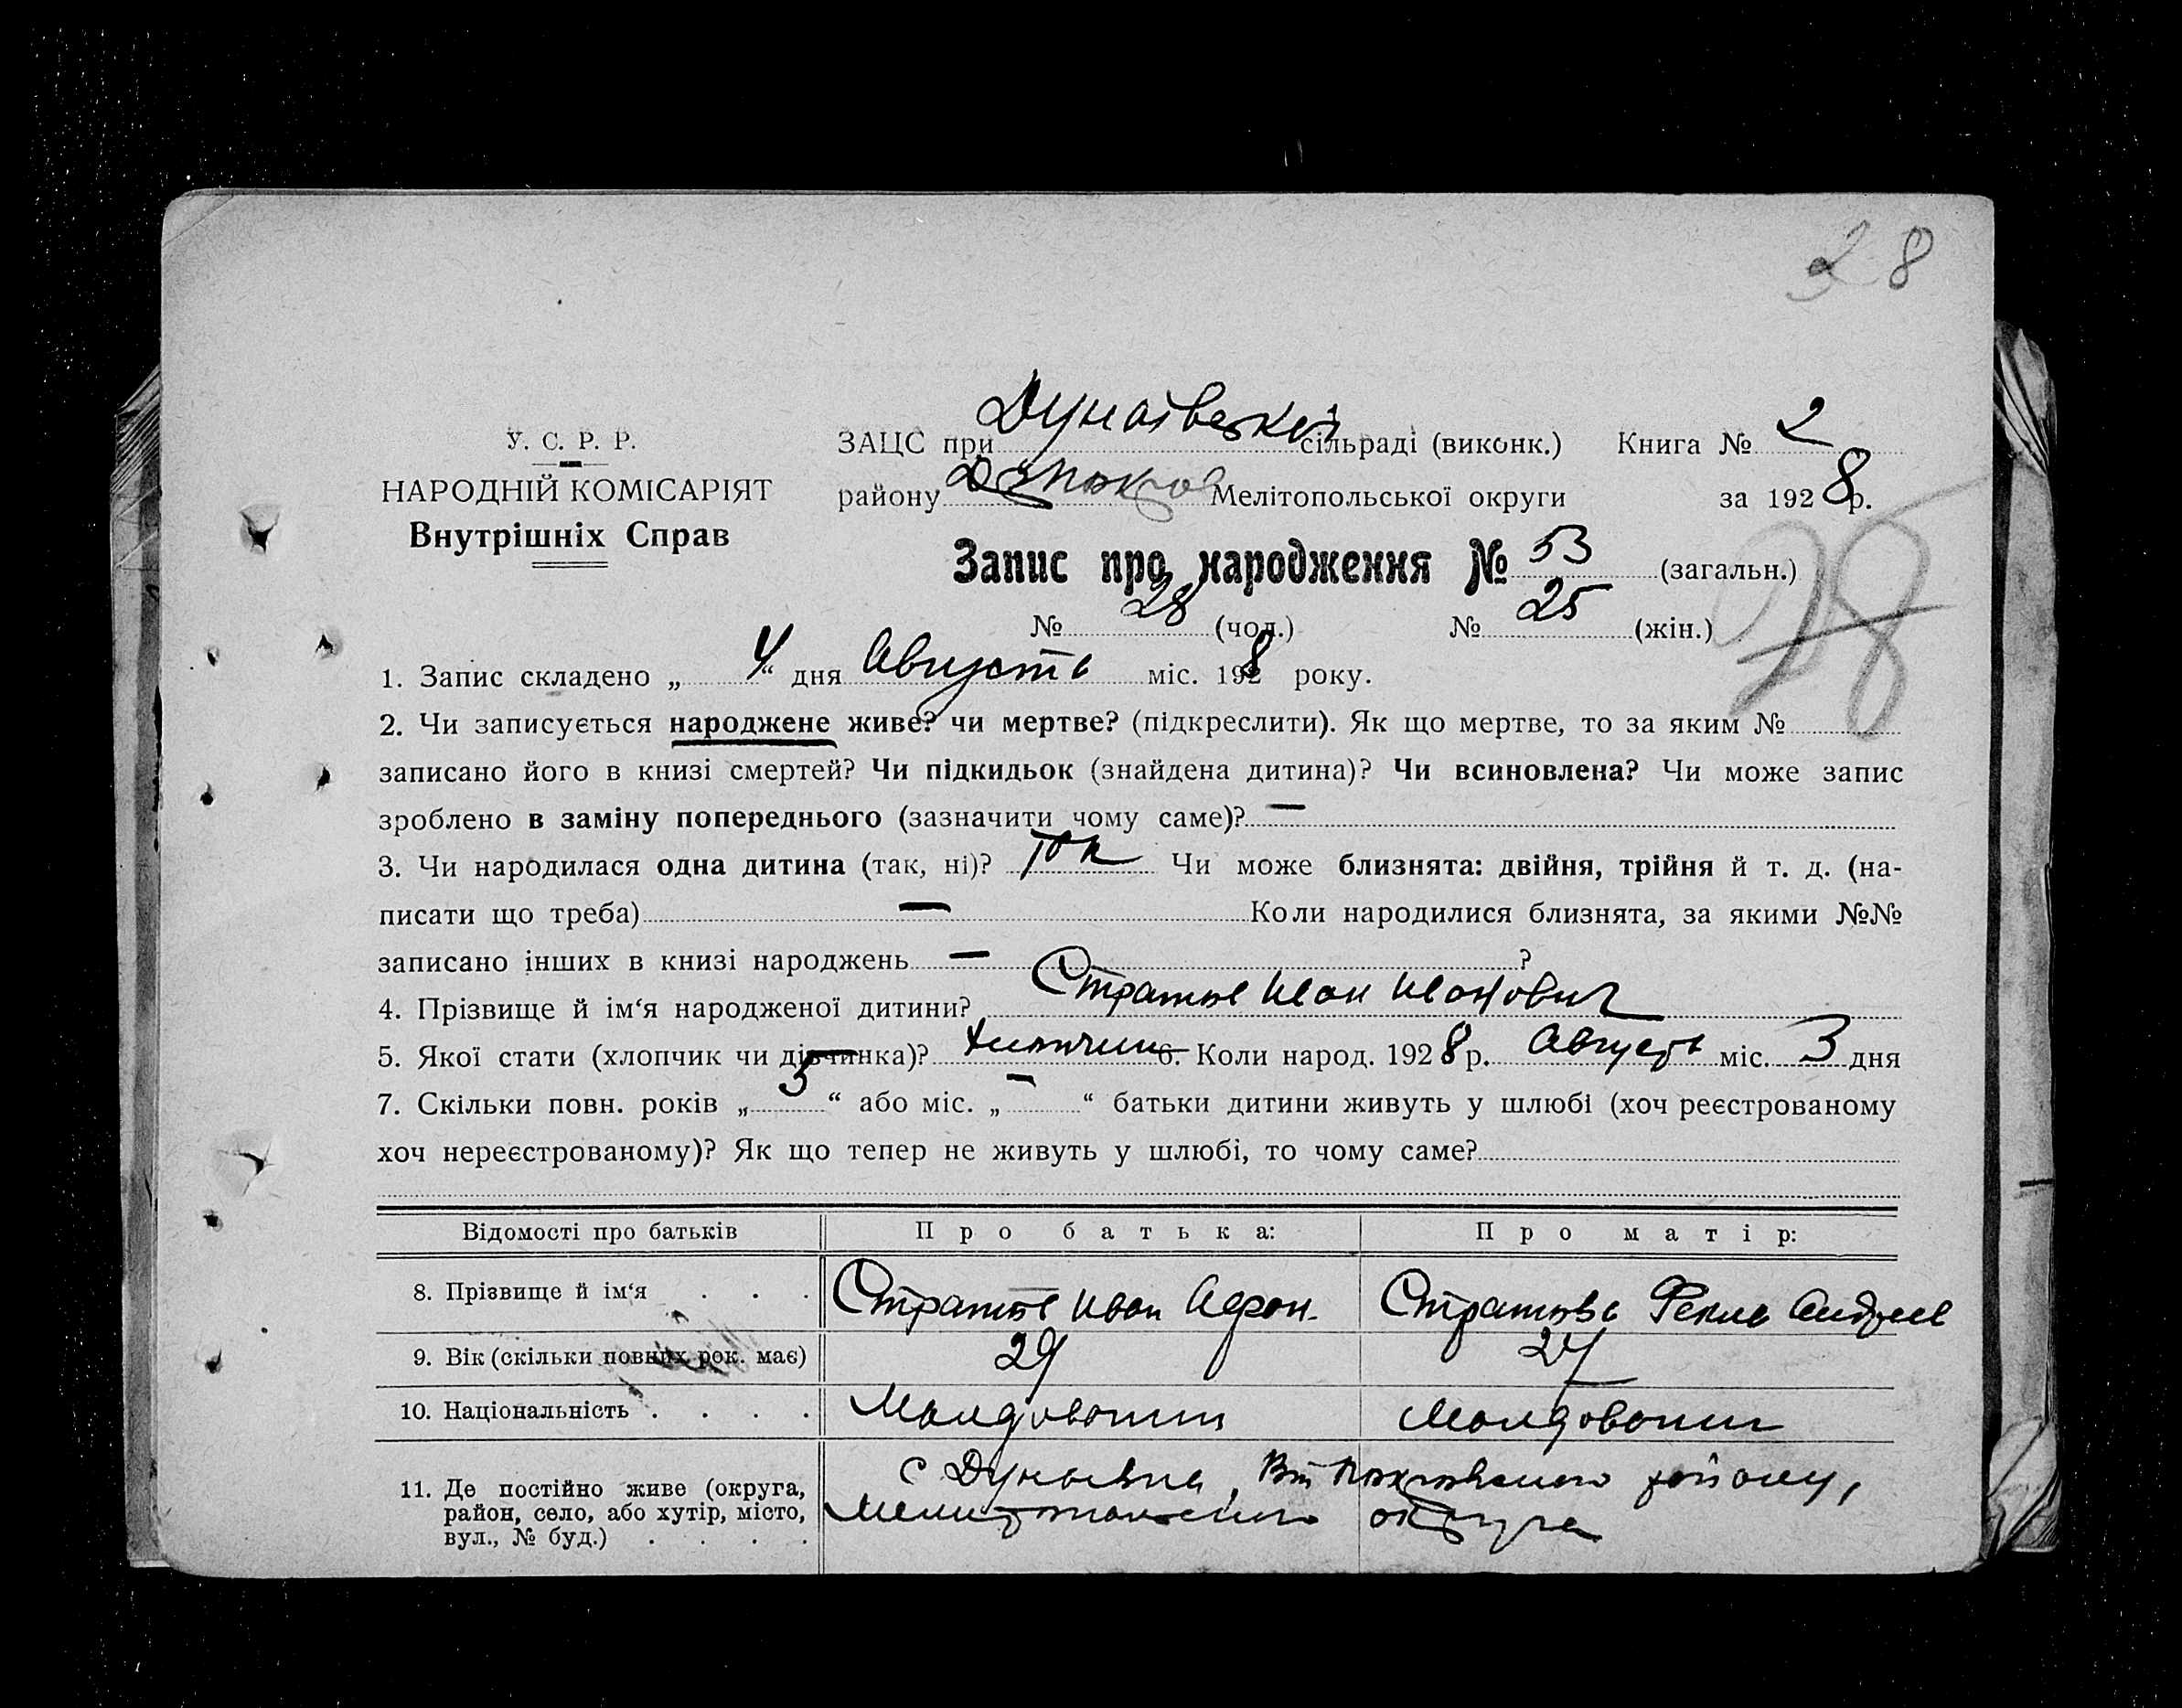 28
У. С. Р. Р.
НАРОДНІЙ КОМІСАРІЯТ
Внутрішніх Справ
ЗАЦС при Дунаївській сільраді (виконк.) Книга № 2
району Мелітопольської округи за 1928 р.
Запис про народження № 53 (загальн.)
№ 28 (чол.) № 25 (жін.)
28
1. Запис складено „ 4 “ дня Августа міс. 1928 року.
2. Чи записується народжене живе? чи мертве? (підкреслити). Як що мертве, то за яким №
записано його в книзі смертей? Чи підкидьок (знайдена дитина)? Чи всиновлена? Чи може запис
зроблено в заміну попереднього (зазначити чому саме)? —
3. Чи народилася одна дитина (так, ні)? так Чи може близнята: двійня, трійня й т. д. (на-
писати що треба) — Коли народилися близнята, за якими №№
записано інших в книзі народжень — ?
4. Прізвище й ім‘я народженої дитини? Стратов Иван Иванович
5. Якої стати (хлопчик чи дівчинка)? хлопчик 6. Коли народ. 1928 р. Августа міс. 3 дня
7. Скільки повн. років „ 5 “ або міс. „ — “ батьки дитини живуть у шлюбі (хоч реєстрованому
хоч нереєстрованому)? Як що тепер не живуть у шлюбі, то чому саме?
Відомості про батьків Про батька: Про матір:
8. Прізвище й ім‘я . . . Стратов Иван Афон. Стратова Фекла Андреев
9. Вік (скільки повних рок. має) 29 27
10. Національність . . . . Молдованин Молдован
11. Де постійно живе (округа, с Дунаевка, району,
район, село, або хутір, місто, Мелитопольского округа
вул., № буд.) . . . .